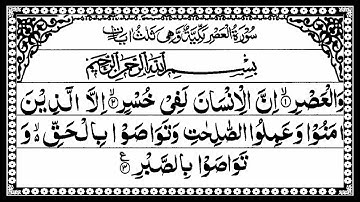 سُوْرَةُ الْعَصْرِ مَكِّيَّةٌ وَّهِيَ ثَلٰثُ اٰيٰتٍ
بِسْمِ اللّٰهِ الرَّحْمٰنِ الرَّحِيْمِ
وَالْعَصْرِ ۙ‏﴿۱﴾ اِنَّ الْاِنْسَانَ لَفِيْ خُسْرٍ ۙ‏﴿۲﴾ اِلَّا الَّذِيْنَ
اٰمَنُوْا وَعَمِلُوا الصّٰلِحٰتِ وَتَوَاصَوْا بِالْحَقِّ ۙ۬ وَ
تَوَاصَوْا بِالصَّبْرِ ‏﴿۳﴾ ع